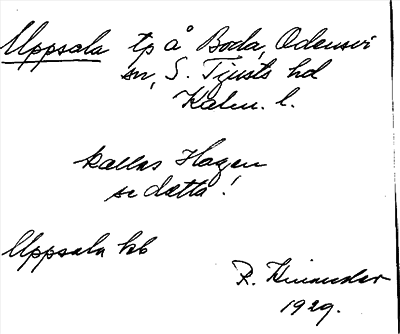 Uppsala tp å Boda, Odensvi
sn, S. Tjusts hd
Kalm. l.
kallas Hagen
se detta!
Uppsala kb
R. Kinander
1929.